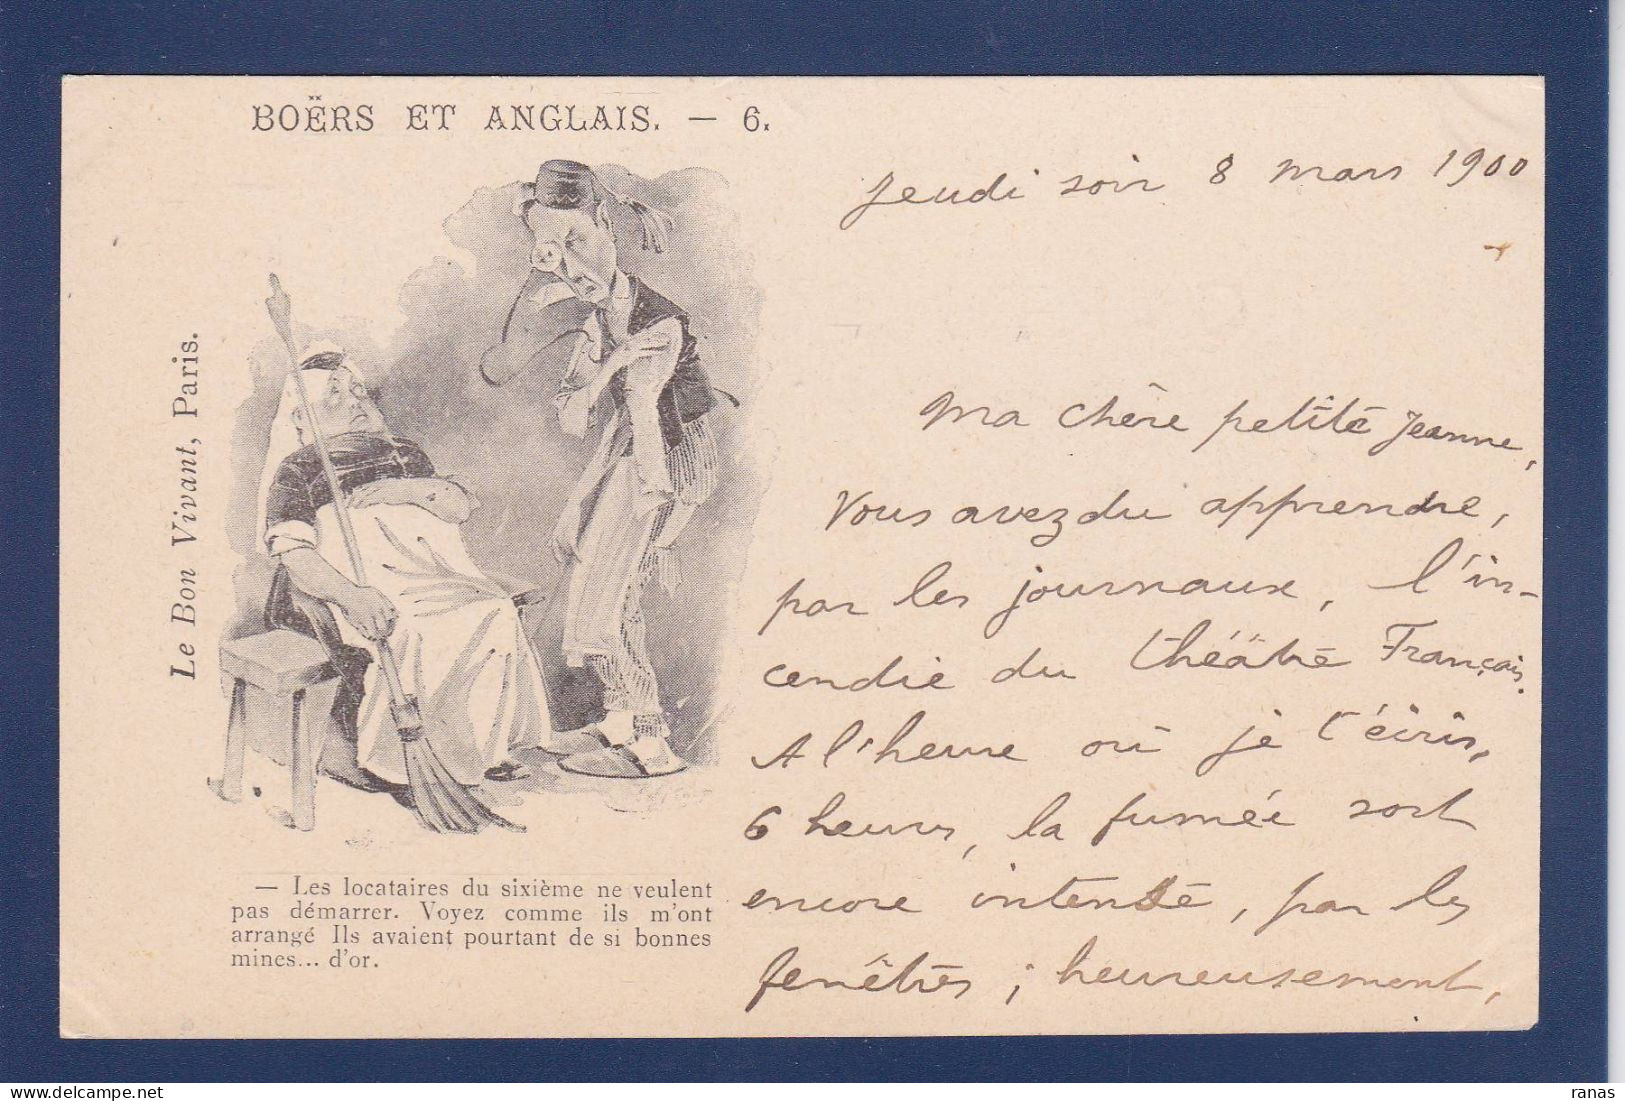 BOËRS ET ANGLAIS. — 6.
Le Bon Vivant, Paris.
— Les locataires du sixième ne veulent
pas démarrer. Voyez comme ils m'ont
arrangé Ils avaient pourtant de si bonnes
mines... d'or.
Jeudi soir 8 mars 1900
Ma chère petite Jeanne,
Vous avez du apprendre,
par les journaux, l'in-
cendie du théâtre Français.
A l'heure où je t'écris,
6 heures, la fumée sort
encore intense, par les
fenêtres ; heureusement,
ranas